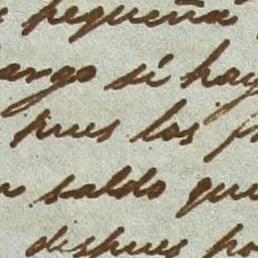 pequeña
si hay
pues los
saldo que
despues